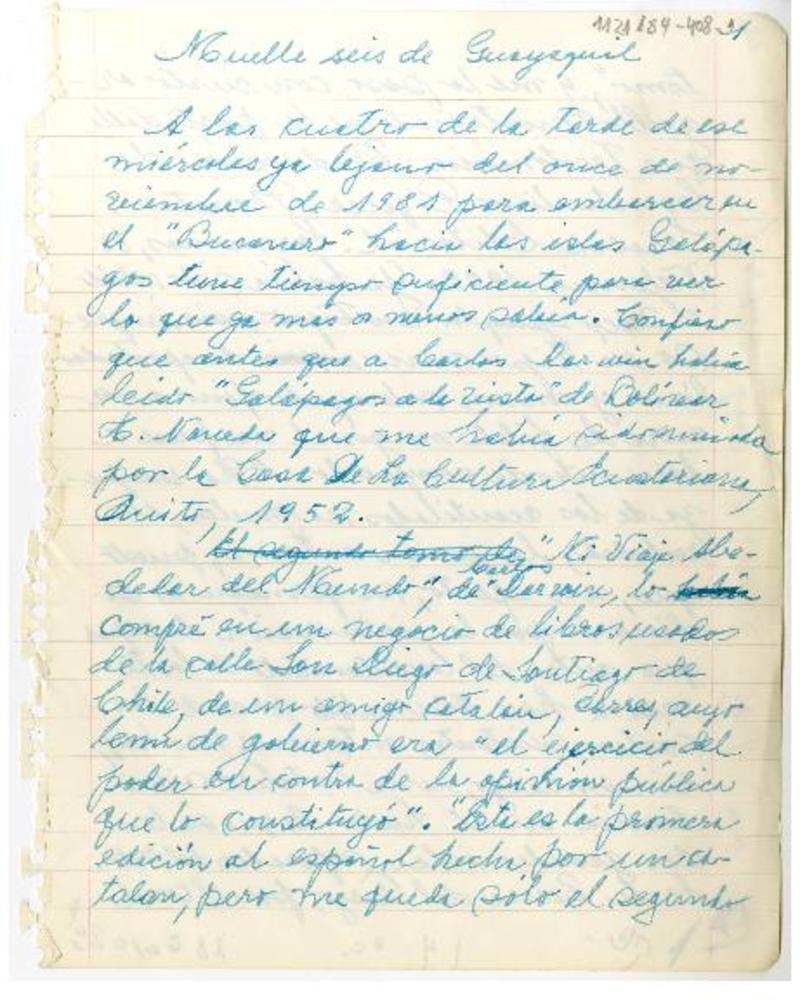 1121184-408-21
Muelle seis de Guayaquil
A las cuatro de la tarde de ese
miércoles ya lejano del once de no-
viembre de 1981 para embarcar en
el "Bucanero" hacia las islas Galápa-
gos tuve tiempo suficiente para ver
lo que ya mas o menos sabía. Confieso
que antes que a Carlos Darwin había
leído "Galápagos a la vista" de Bolívar
H. Naveda que me había sido
por la Casa De La Cultura Ecuatoriana,
Quito, 1952.
El segundo tomo de "Mi Viaje Alre-
dedor del Mundo", de Carlos Darwin, lo había
compré en un negocio de libros usados
de la calle San Diego de Santiago de
Chile, de un amigo catalán, cuyo
lema de gobierno era "el ejercicio del
poder en contra de la opinión pública
que lo constituyó". "Esta es la primera
edición al español hecha por un ca-
talan, pero me queda sólo el segundo